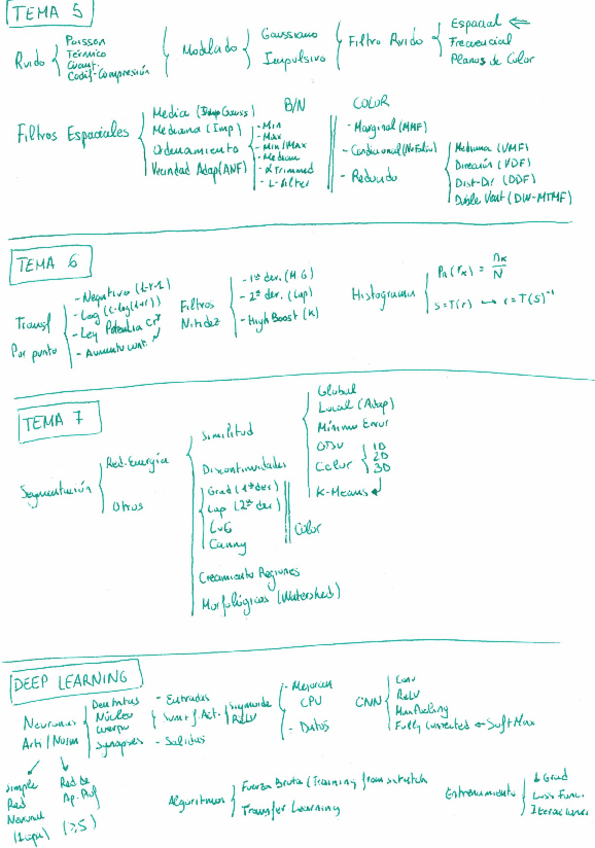 TEMA 5
Ruido
Poisson
Térmico
Cuant.
Codif-Compresión
Modelado
Gaussiano
Impulsivo
Filtro Ruido
Espacial
Frecuencial
Planos de Color
Filtros Espaciales
Media (Gauss)
Mediana (Imp)
Ordenamiento
Vecindad Adap (ANF)
B/N
- Min
- Max
- Min/Max
- Median
- αTrimmed
- L-filter
COLOR
- Marginal (MMF)
- Condicional (No Fiable)
- Reducido
Mediana (VMF)
Dirección (VDF)
Dist-Dir (DDF)
Doble Vent (DW-MTMF)
TEMA 6
Transf
Por punto
- Negativo (L-r-1)
- Log (c·log(1+r))
- Ley Potencia Crˠ
- Aumento cont.
Filtros
Nitidez
- 1ª der. (MG)
- 2ª der. (Lap)
- High Boost (K)
Histograma
Pₙ(rₖ) = nₖ/N
s=T(r) → r=T(s)⁻¹
TEMA 7
Segmentación
Red. Energía
Otros
Similitud
Global
Local (Adap)
Mínimo Error
OTSU
Color
1D
2D
3D
K-Means
Discontinuidades
Grad (1ª der)
Lap (2ª der)
LoG
Canny
Color
Crecimiento Regiones
Morfológicos (Watershed)
DEEP LEARNING
Neuronas
Arti/Norm
Dentritas
Núcleo
Cuerpo
Synapses
- Entradas
Sum f. Act.
- Salidas
Sigmoide
ReLU
- Mejoran
CPU
- Datos
CNN
Conv
ReLU
MaxPooling
Fully Connected ← SoftMax
Simple
Red
Neuronal
(1 capa)
Red de
Ap. Prof
(≥5)
Algoritmos
Fuerza Bruta (Training from scratch
Transfer Learning
Entrenamiento
↓ Grad
Loss Func.
Iteraciones